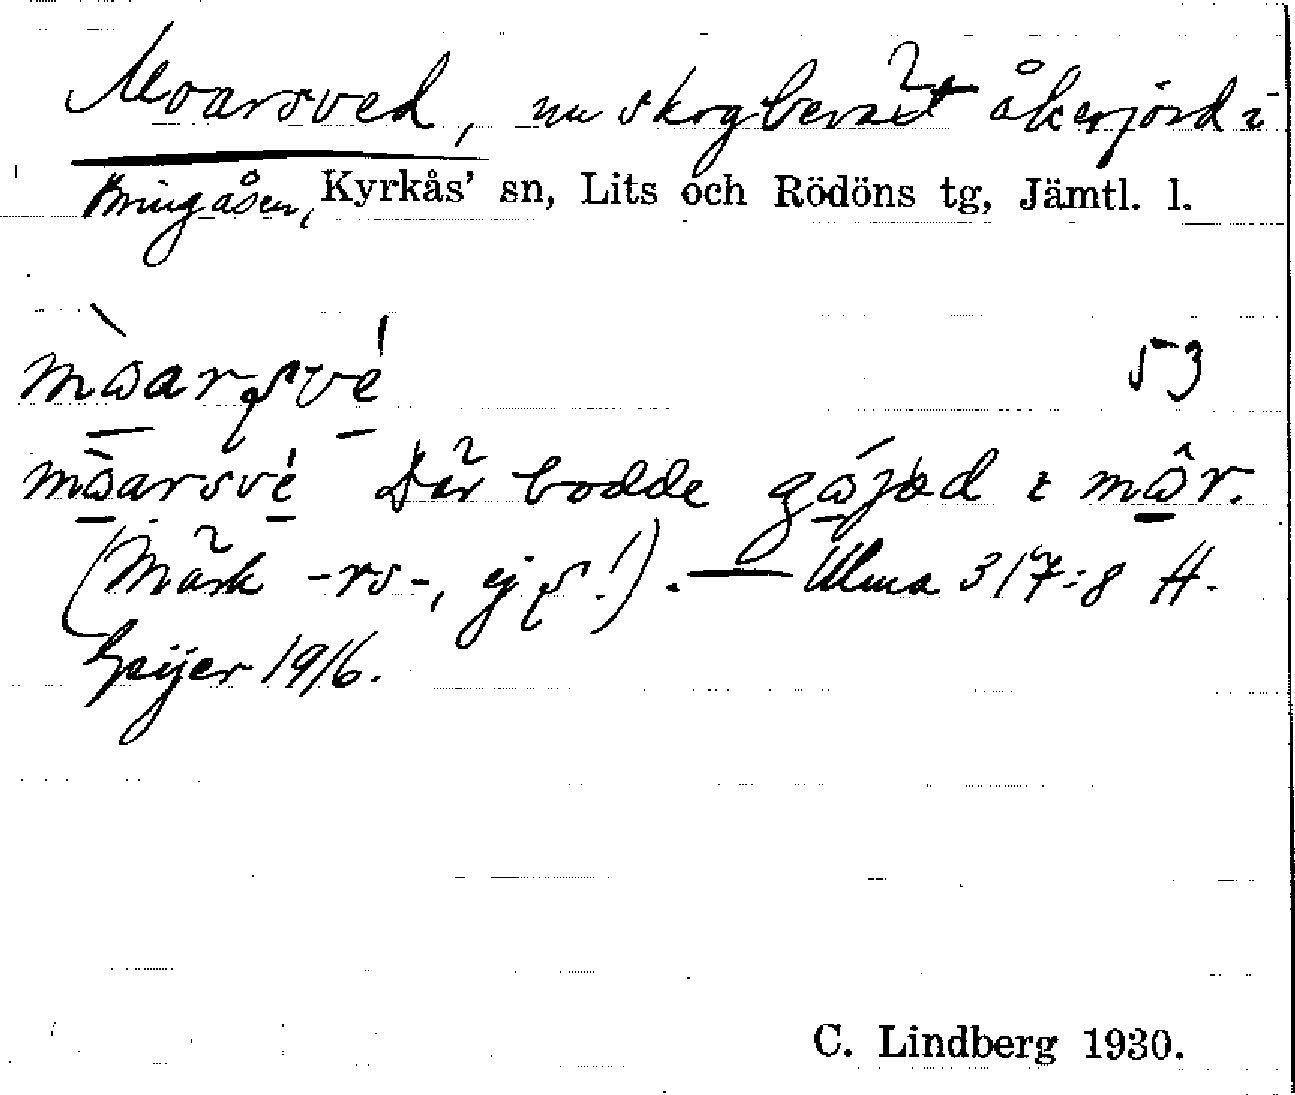 Moarsved, nu skogbeväxt åkerjord i
Bringåsen, Kyrkås' sn, Lits och Rödöns tg, Jämtl. l.
53
Där bodde
(Märk -rs-, ej !). — Ulma 317:8 H.
Geijer 1916.
C. Lindberg 1930.